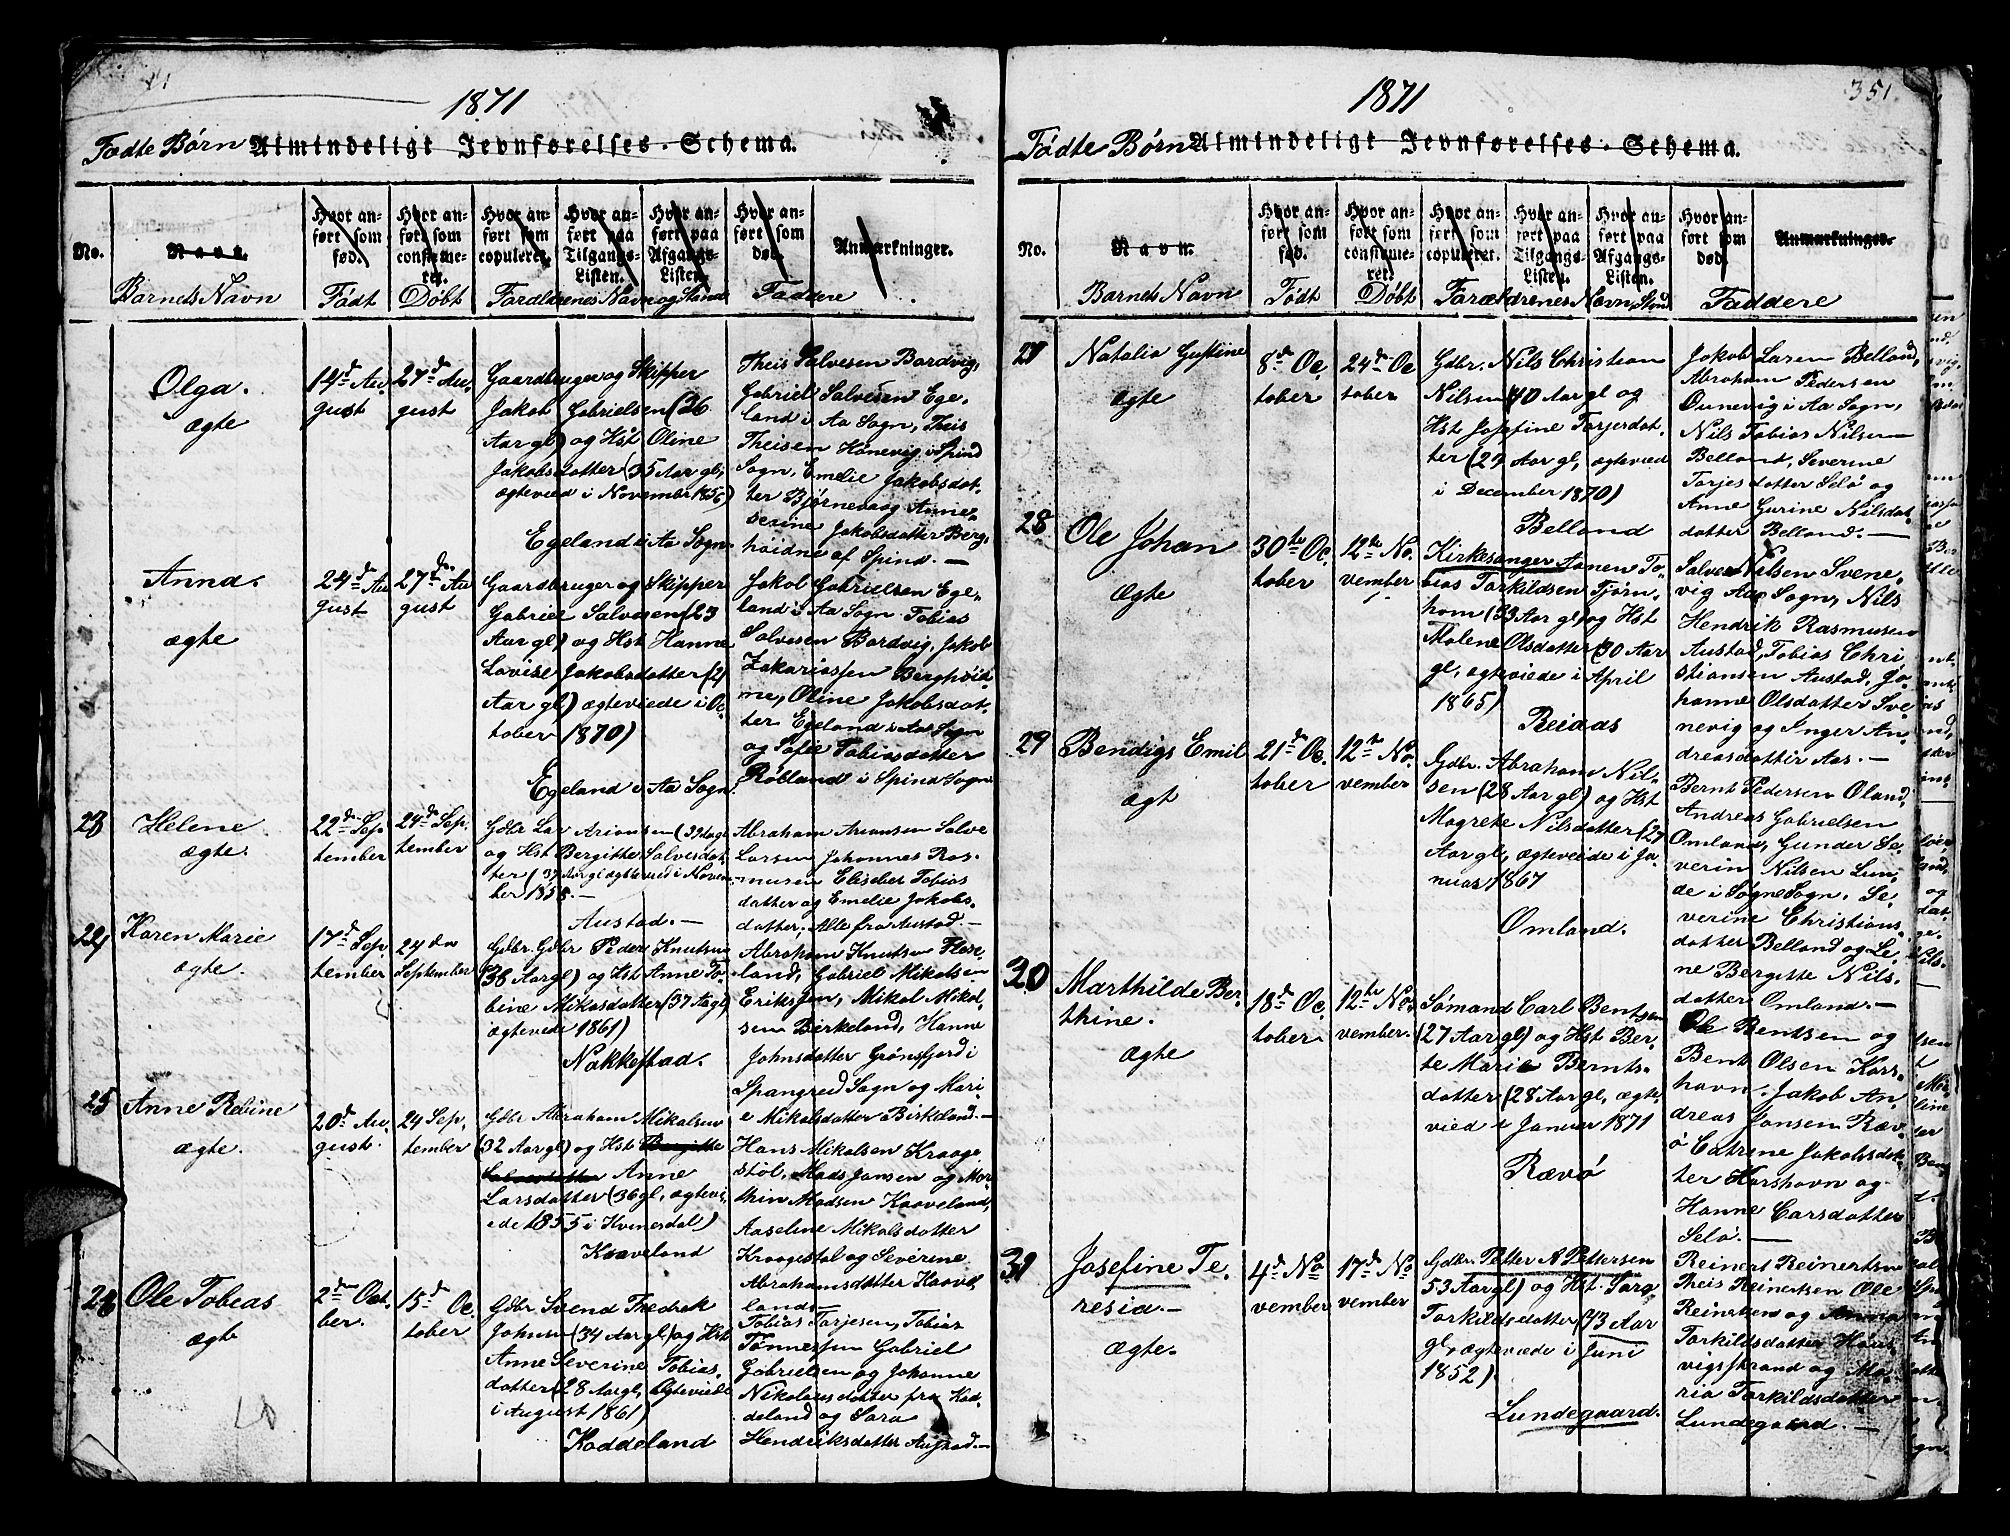 1871
Fødte Børn Almindeligt Jevnførelses-Schema.
No.
Navn.
Barnets Navn
Hvor anført som fød.
Født
Hvor anført som confirmeret.
Døbt
Hvor anført som copuleret.
Hvor anført paa Tilgangs-Listen.
Hvor anført paa Afgangs-Listen.
Forældrenes Navn og Stand
Hvor anført som død.
Anmærkninger.
Faddere
Olga.
ægte
14d Au
gust
27d Au
gust
Gaardbruger og Skipper
Jakob Gabrielsen (26
Aar gl) og Hst Oline
Jakobsdatter (35 Aar gl,
ægteviede i November 1856)
Egeland i Aa Sogn
Theis Salvesen Bardvig,
Gabriel Salvesen Ege-
land i Aa Sogn, Theis
Theisen Hanevig i Spind
Sogn, Emelie Jakobsdat-
ter Bjørnevaag Anne-
serine Jakobsdatter Berg-
høidne af Spind. —
Anna.
ægte
24d Au
gust
27de Au
gust
Gaardbruger og Skipper
Gabriel Salvesen (23
Aar gl) og Hst Hanne
Lovise Jakobsdatter (21
Aar gl) ægteviede i Oc
tober 1870)
Egeland i Aa Sogn.
Jakob Gabrielsen Ege-
land i Aa Sogn Tobias
Salvesen Bardvig, Jakob
Zakariassen Berghøid-
ne, Oline Jakobsdat-
ter Egeland i Aa Sogn
og Sofie Tobiasdatter
Røbland i Spind Sogn
23
Helene
ægte.
22de Sep
tember
24d Sep,
tember
Gdbr Lars Arionsen (39 Aar gl
og Hst Bergitte Salvesdat
ter (37 Aar gl ægteviede i Novem-
ber 1858. —
Austad. —
Abraham Arionsen Salve
Larsen Johannes Ras-
musen Elisebet Tobias
datter og Emelie Jakobs-
datter. Alle fra Austad —
24
Karen Marie
ægte.
17d Sep
tember
24de
September
Gdbr. Gdbr Peder Knutsen
(38 Aar gl) og Hst Anne To-
bine Mikalsdatter (37 Aar gl)
ægteviede 1861)
Nakkestad.
Abraham Knutsen Flose-
land, Gabriel Mikalsen
Eriksen, Mikal Mikal-
sen Birkeland, Hanne
Johnsdatter Grønsfjord i
Spangreid Sogn og Mari-
e Mikalsdatter Birkeland. —
25
Anne Rebine
ægte.
20d Au,
gust.
24 Sep,
tember
Gdbr Abraham Mikalsen
(32 Aar gl) og Hst Bergitte
Salvesdatter Anne
Larsdatter (36 gl, ægtevi,
ede 1855 i Kvinesdal)
Kaaveland
Hans Mikalsen Kraage
støl, Mads Jansen og Mar-
thin Madsen Kaaveland,
Aaseline Mikalsdatter
Kraagestøl og Severine
Abrahamsdatter Kaave
land.
26
Ole Tobias
ægte
2den Octo
ber.
15d Oc
tober
Gdbr. Svend Fredrik
Johnsen (34 Aar gl) og Hst
Anne Severine Tobias-
datter (28 Aar gl, ægteviede
i August 1861)
Kaddeland
Tobias Tarjesen, Tobias
Tønnessen Gabriel
Gabrielsen og Johanne
Nikolausdatter fra Kad-
deland og Sara
Hendriksdatter Austad. —
1871
351
Fødte Børn Almindeligt Jevnførelses-Schema.
No.
Navn.
Barnets Navn
Hvor anført som fød.
Født
Hvor anført som confirmeret.
Døbt
Hvor anført som copuleret.
Hvor anført paa Tilgangs-Listen.
Hvor anført paa Afgangs-Listen.
Forældrenes Navn, Stand
Hvor anført som død.
Anmærkninger.
Faddere
27
Natalia Gustine
ægte
8d Oc,
tober
24d Oc
tober
Gdbr. Nils Christian
Nilsen (40 Aar gl og
Hst Josefine Tarjerdat,
ter (24 Aar gl, ægteviede
i December 1870)
Belland
Jakob Larsen Belland,
Abraham Pedersen
Ounevig i Aa Sogn,
Nils Tobias Nilsen
Belland, Severine
Tarjesdatter Selø og
Anne Gurine Nilsdat-
datter Belland. —
28
Ole Johan
ægte
30te Oc,
tober
12te No,
vember
Kirkesanger Aanen To-
bias Torkildsen Tjørn-
hom (33 Aar gl) og Hst
Malene Olsdatter (30 Aar
gl, ægteviede i April
1865)
Reiaas
Salve Nilsen Svene-
vig Aa Sogn, Nils
Hendrik Rasmusen
Austad, Tobias Chri
stiansen Austad, Jo-
hanne Olsdatter Sve-
nevig og Inger An-
dreasdatter Aas. —
29
Bendigs Emil
ægt
21d Oc.
tober
12te No,
vember
Gdbr. Abraham Nil-
sen (28 Aar gl) og Hst
Magrete Nilsdatter (27
Aar gl, ægteviede i Ja-
nuar 1867
Omland.
Bernt Pedersen Øland,
Andreas Gabrielsen
Omland, Gunder Se-
verin Nilsen Lun-
de i Søgne Sogn. Se-
verine Christians-
datter Belland og Le-
ne Bergitte Nils-
datter Omland. —
30
Marthilde Ber-
thine.
ægte
18d Oc,
tober
12te No,
vember.
Sømand Carl Bentsen
(27 Aar gl) og Hst Ber-
te Marie Bernts-
datter (28 Aar gl, ægte,
vied i Januar 1871
Rævø
Ole Bentsen og
Bent Olsen Kors-
havn. Jakob An-
dreas Jansen Ræv-
ø Catrine Jakobsdat-
ter Korshavn og
Hanne Larsdatter
Selø. —
31
Josefine Te-
resia. —
ægte.
4d No
vember
17d No
vember
Gdbr. Petter A Pettersen
53 Aar gl) og Hst Sara
Torkildsdatter (43 Aar
gl, ægteviede i Juni
1852)
Lundegaard.
Reinert Reinertsen
Theis Reinertsen Ole
Reinertsen og Anna
Torkildsdatter Haan
vigstrand og Ma-
ria Torkildsdatter
Lundegaard. —